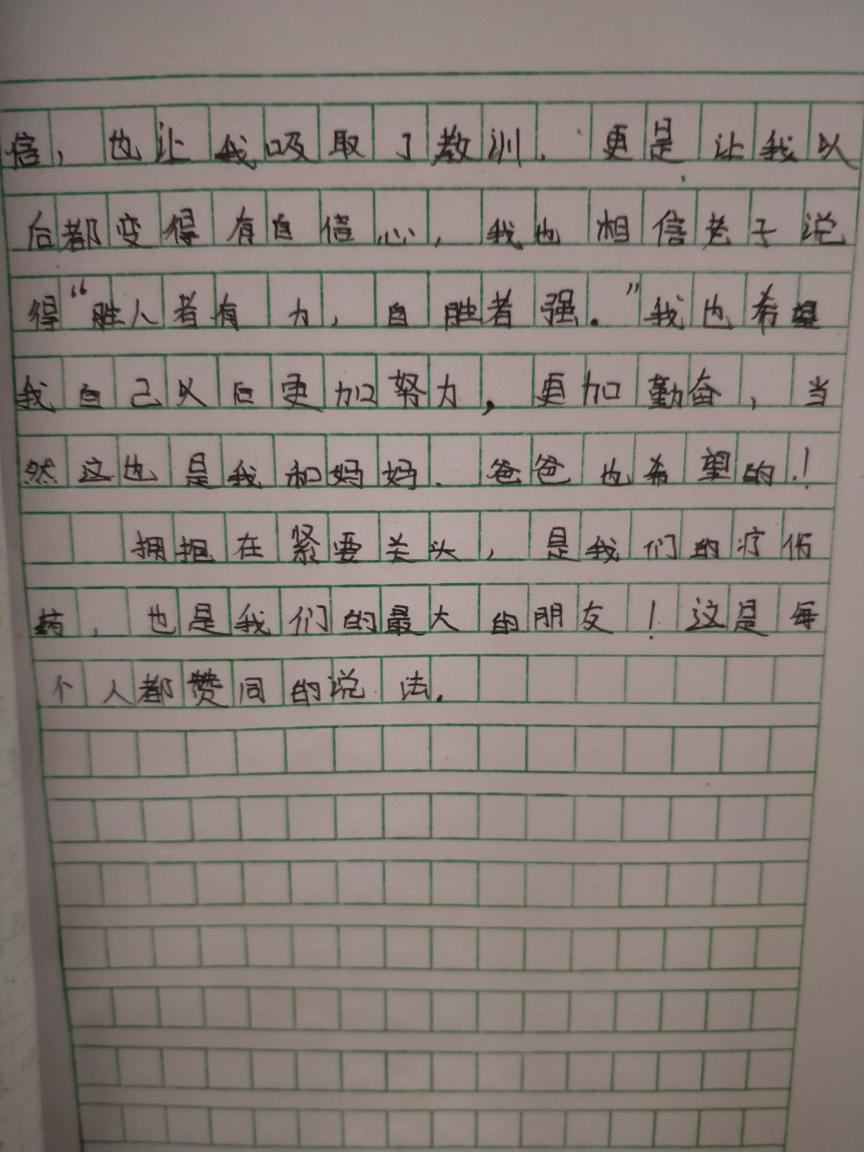 信，也让我吸取了教训，更是让我以
后都变得有自信心，我也相信老子说
得“胜人者有力，自胜者强。”我也希望
我自己以后更加努力，更加勤奋，当
然这也是我和妈妈、爸爸也希望的！
拥抱在紧要关头，是我们的疗伤
药，也是我们的最大的朋友！这是每
个人都赞同的说法。